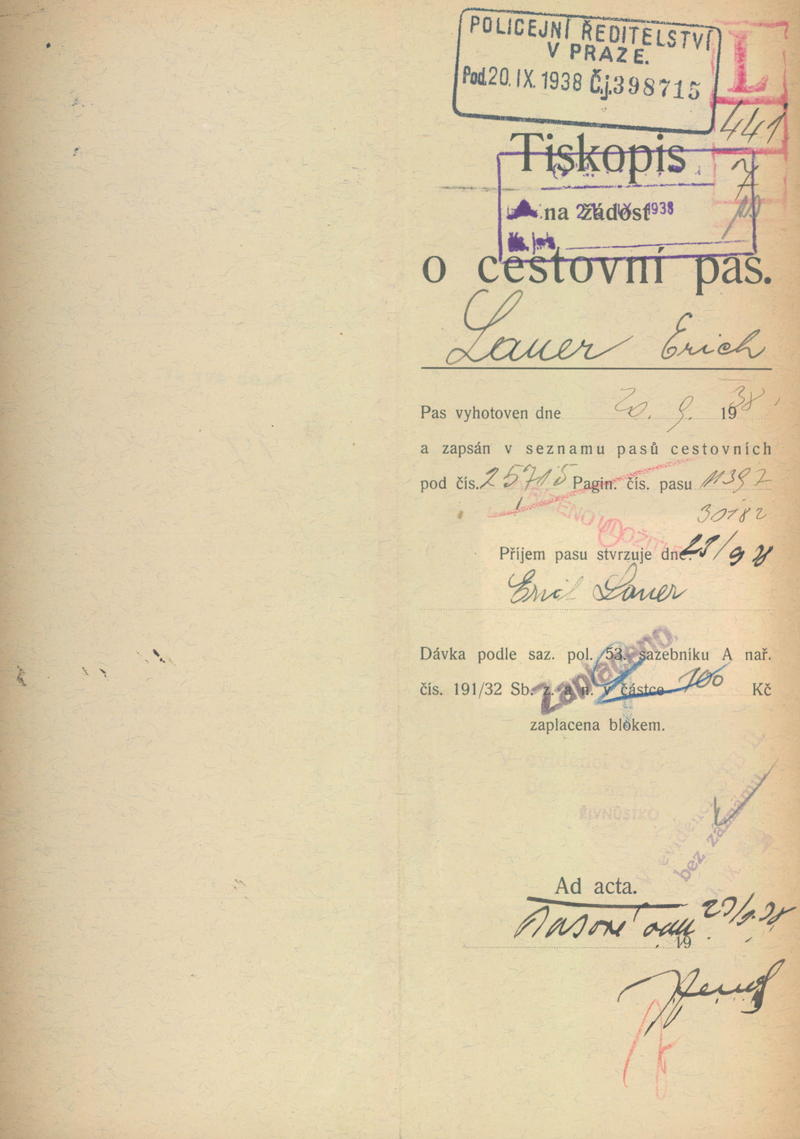 POLICEJNÍ ŘEDITELSTVÍ
V PRAZE.
Pod. 20. IX. 1938 Č.j. 398715
L
441
7
Tiskopis
na žádost
IX 1938
o cestovní pas.
Lauer Erich
Pas vyhotoven dne 20. 9. 1938
a zapsán v seznamu pasů cestovních
pod čís. 25715 Pagin. čís. pasu 11397
30182
Příjem pasu stvrzuje dne
Erich Lauer
Zaplaceno.
Dávka podle saz. pol. 53. sazebníku A nař.
čís. 191/32 Sb. z. a n. v částce 100 Kč
zaplacena blokem.
V evidenci
ŽIVNŮSTKO
V evidenci
bez záznamu
Ad acta.
19